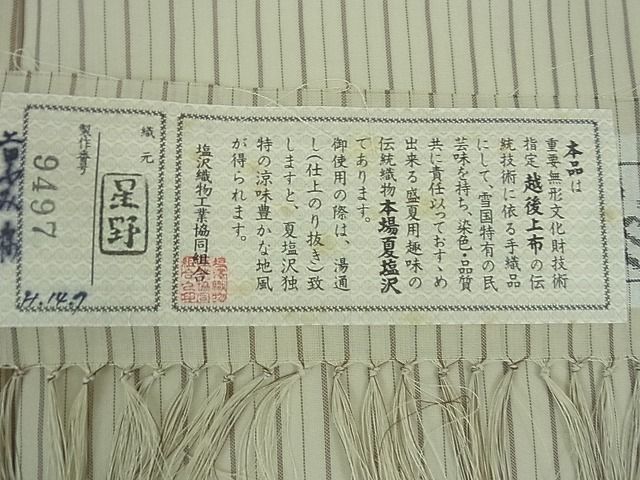 本品は
重要無形文化財技術
指定越後上布の伝
統技術に依る手織品
にして、雪国特有の民
芸味を持ち、染色・品質
共に責任以っておすゝめ
出来る盛夏用趣味の
伝統織物本場夏塩沢
であります。
御使用の際は、湯通
し(仕上のり抜き)致
しますと、夏塩沢独
特の涼味豊かな地風
が得られます。
塩沢織物工業協同組合
塩沢織物
工業協同
組合之印
織元
星野
製作番号
9497
H.14.7